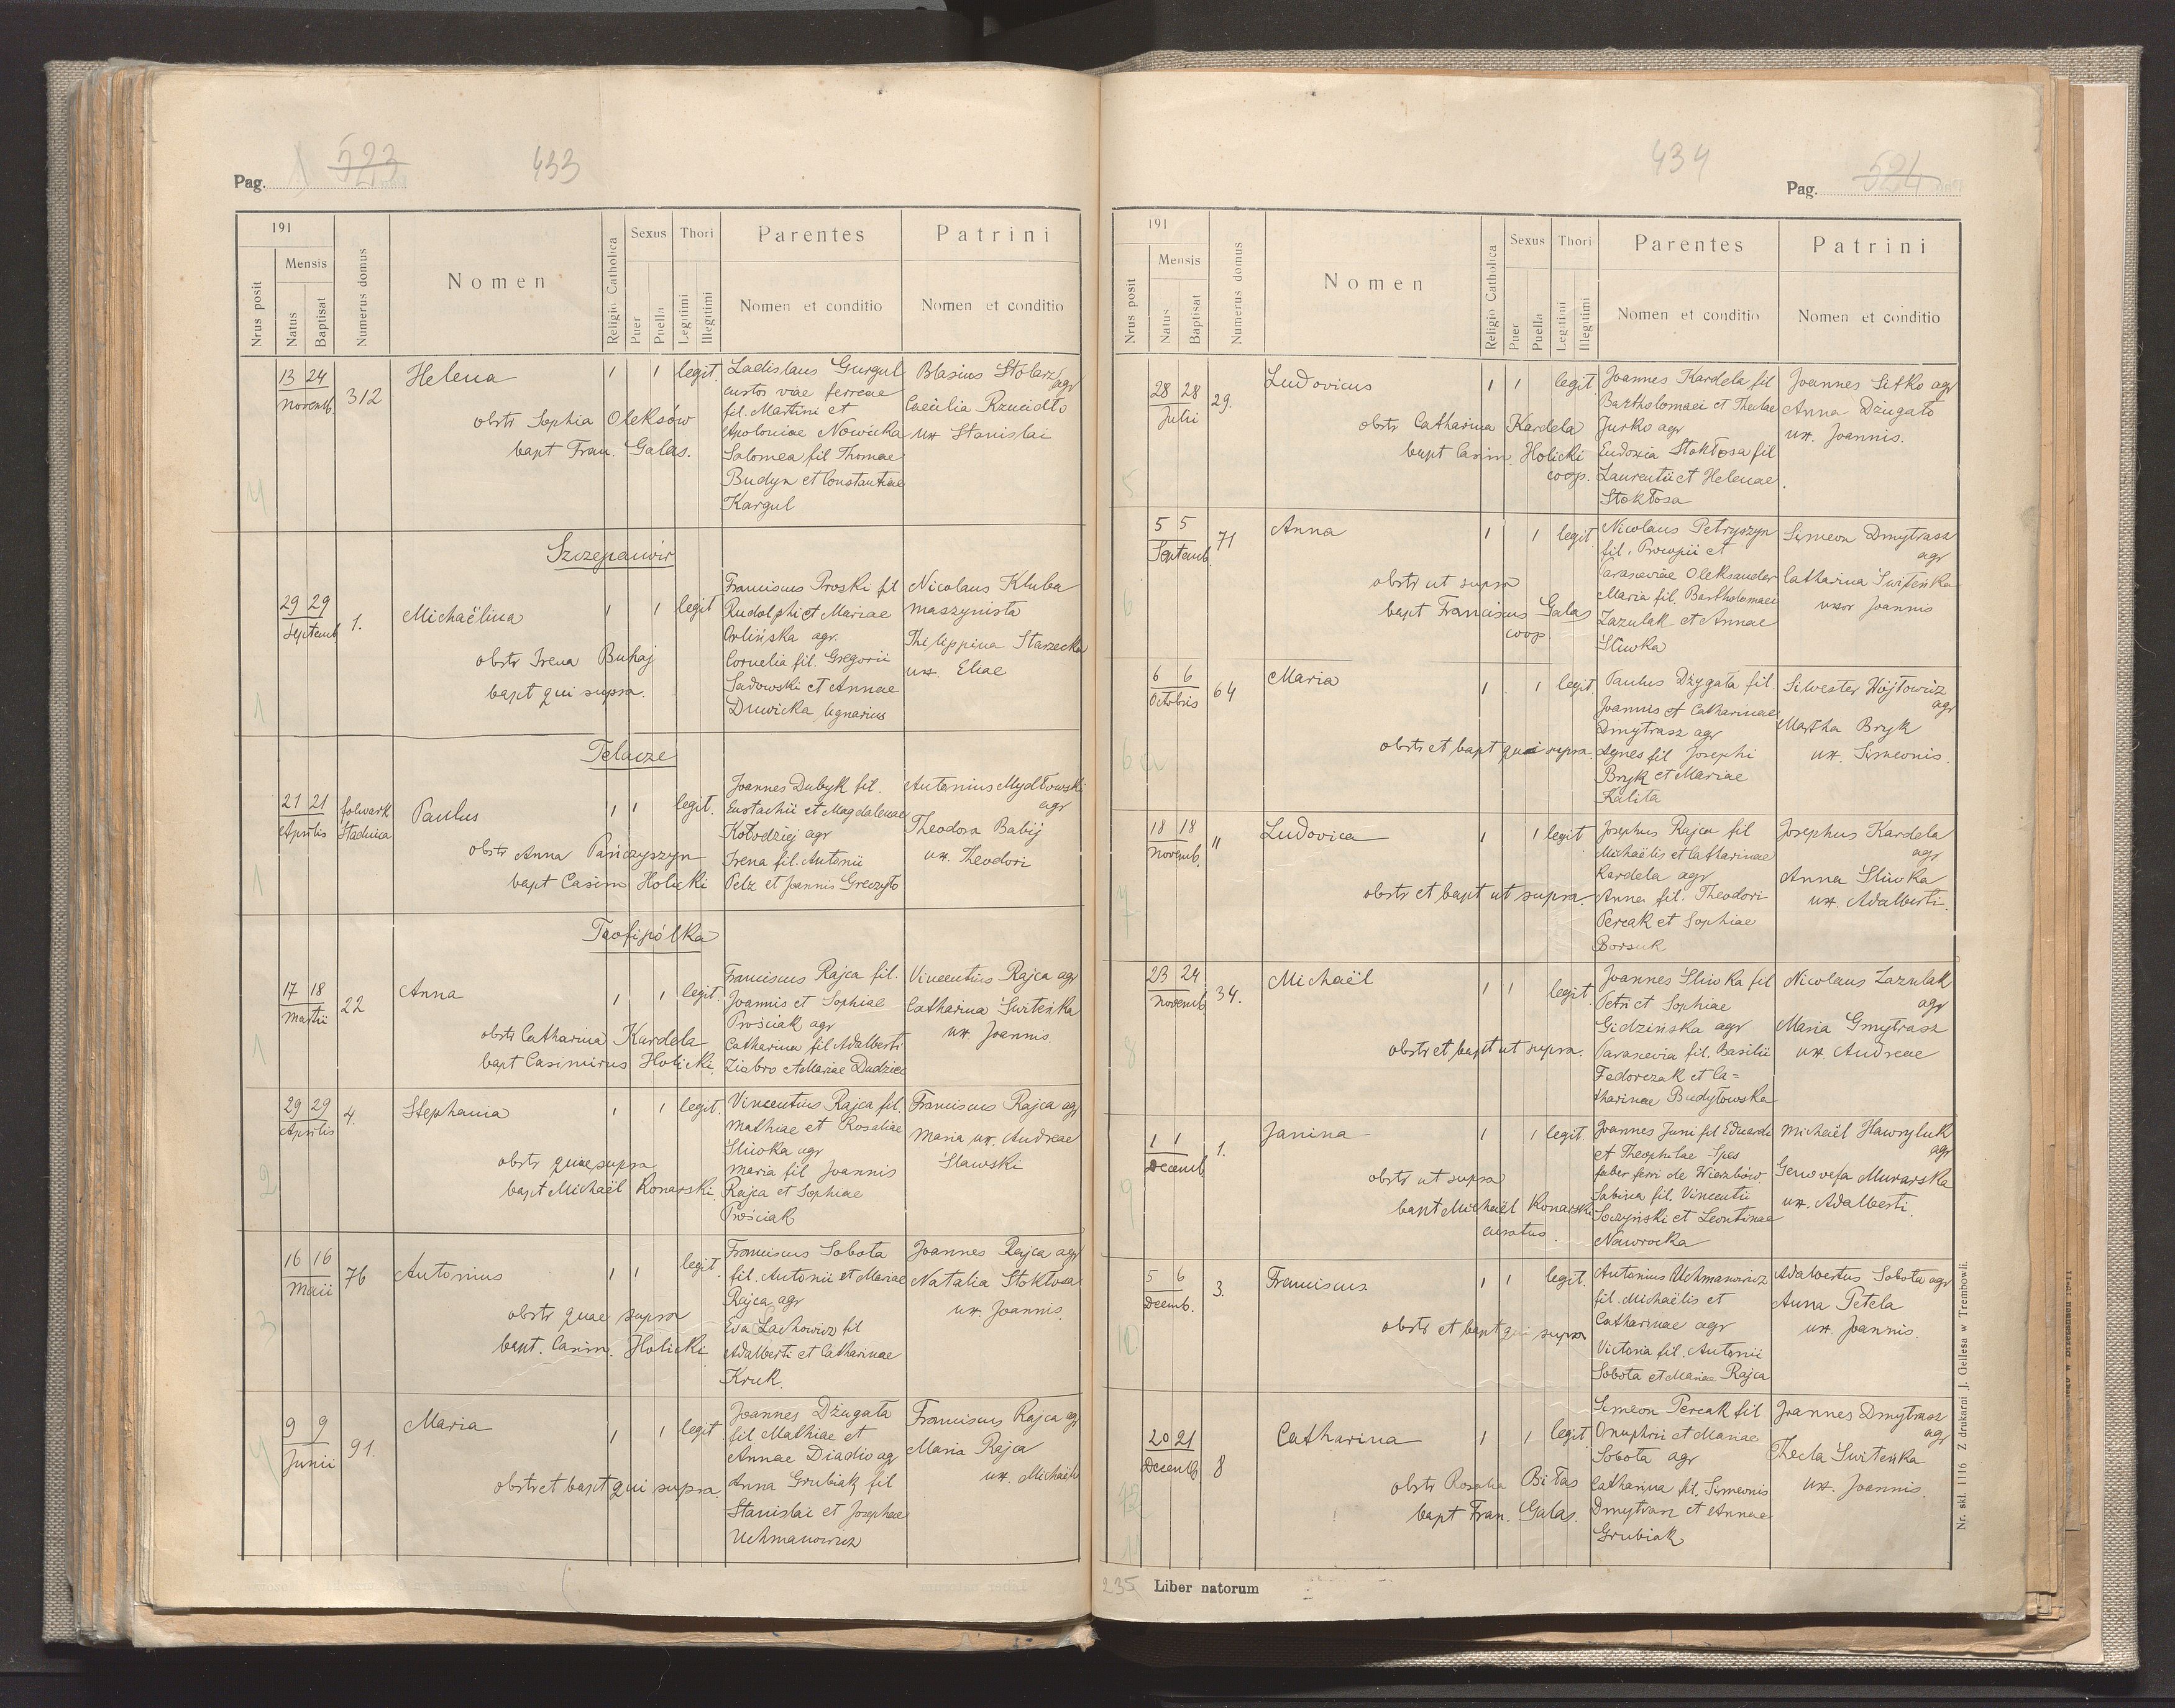 Pag. 523 433
191
Nrus posit
Mensis
Natus
Baptisat
Numerus domus
Nomen
Religio Catholica
Sexus
Puer
Puella
Thori
Legitimi
Illegitimi
Parentes
Nomen et conditio
Patrini
Nomen et conditio
4
13 24
Novemb
312
Helena
1 1 legit.
obstr Sophia Oleksów
bapt Fran. Galas.
Ladislaus Gurgul
custos viae ferreae
fil. Martini et
Apoloniae Nowicka
Salomea fil Thomae
Budyn et Constantiae
Kargul
Blasius Stolarz agr
Caecilia Rzucidło
ux Stanislai
Szczepanwir
1
29 29
Septemb
1.
Michaëlina
1 1 legit
obstr Irena Buhaj
bapt qui supra.
Franciscus Proski fil
Rudolphi et Mariae
Orlińska agr.
Cornelia fil. Gregorii
Sadowski et Annae
Druwicka, lignarius
Nicolaus Kluba
maszynista
Philippina Starzecka
ux. Eliae
Telacze
1
21 21
Aprilis
folwark
Stadnica
Paulus
1 1 legit.
obstr Anna Pańczyszyn
bapt Casim Holicki
Joannes Dubyk fil.
Eustachii et Magdalenae
Kołodziej agr
Irena fil. Antonii
Pelz et Joannis Greczyło
Antonius Mydłowski
agr
Theodora Babij
ux. Theodori
Teofipólka
1
17 18
Martii
22
Anna
1 1 legit.
obstr Catharina Kardela
bapt Casimirus Holicki.
Franciscus Rajca fil.
Joannis et Sophiae
Prościak agr
Catharina fil Adalberti
Ziobro et Mariae Dudziec
Vincentius Rajca agr
Catharina Switeńka
ux. Joannis.
2
29 29
Aprilis
4.
Stephania
1 1 legit.
obstr quae supra
bapt Michaël Konarski.
Vincentius Rajca fil.
Mathiae et Rosaliae
Śliwka agr
Maria fil Joannis
Rajca et Sophiae
Prościak
Franciscus Rajca agr
Maria ux. Andreae
Sławski
3
16 16
Maii
76
Antonius
1 1 legit.
obstr quae supra
bapt. Casim. Holicki
Franciscus Sobota
fil. Antonii et Mariae
Rajca agr
Eva Lachowicz fil
Adalberti et Catharinae
Kruk.
Joannes Rajca agr
Natalia Stokłosa
ux. Joannis.
4
9 9
Junii
91.
Maria
1 1 legit
obstr et bapt qui supra.
Joannes Dżugała
fil Mathiae et
Annae Diadio agr
Anna Grubiak fil
Stanislai et Josephae
Uchmanowicz
Franciscus Rajca agr
Maria Rajca
ux. Michaëlis
434 Pag. 524
191
Nrus posit
Mensis
Natus
Baptisat
Numerus domus
Nomen
Religio Catholica
Sexus
Puer
Puella
Thori
Legitimi
Illegitimi
Parentes
Nomen et conditio
Patrini
Nomen et conditio
5
28 28
Julii
29.
Ludovicus
1 1 legit
obstr Catharina Kardela
bapt Casim. Holicki
coop.
Joannes Kardela fil
Bartholomaei et Theclae
Jurko agr
Eudoxia Stokłosa fil
Laurentii et Helenae
Stokłosa
Joannes Sitko agr
Anna Dżugało
ux. Joannis.
6
5 5
Septemb.
71
Anna
1 1 legit
obstr ut supra
bapt Franciscus Galas
coop.
Nicolaus Petryszyn
fil. Procopii et
Parasceviae Oleksander
Maria fil. Bartholomaei
Zazulak et Annae
Śliwka
Simeon Dmytrasz
agr
Catharina Switeńka
uxor Joannis
6a
6 6
Octobris
64
Maria
1 1 legit.
obstr et bapt qui supra.
Paulus Dżygała fil.
Joannis et Catharinae
Dmytrasz agr
Agnes fil Josephi
Bryk et Mariae
Kalita
Silvester Wójtowicz
agr
Martha Bryk
ux. Simeonis.
7
18 18
Novemb.
"
Ludovica
1 1 legit
obstr et bapt ut supra.
Josephus Rajca fil
Michaëlis et Catharinae
Kardela agr
Anna fil. Theodori
Percak et Sophiae
Borsuk
Josephus Kardela
agr
Anna Śliwka
ux. Adalberti.
8
23 24
Novemb
34.
Michaël
1 1 legit.
obstr et bapt ut supra.
Joannes Śliwka fil
Petri et Sophiae
Gidzińska agr
Parascevia fil. Basilii
Fedorczak et Ca=
tharinae Budyłowska
Nicolaus Zazulak
agr
Maria Gmytrasz
ux. Andreae
9
1 1
Decemb
1.
Janina
1 1 legit.
obstr ut supra
bapt Michaël Konarski
curatus.
Joannes Juni fil Eduardi
et Theophilae Spes
faber ferri de Wierzbów
Sabina fil. Vincentii
Soczyński et Leontinae
Nawrocka
Michaël Hawryluk
agr
Genovefa Murarska
ux. Adalberti.
10
5 6
Decemb.
3.
Franciscus
1 1 legit.
obstr et bapt qui supra
Antonius Uchmanowicz
fil. Michaëlis et
Catharinae agr
Victoria fil. Antonii
Sobota et Mariae Rajca
Adalbertus Sobota agr
Anna Petela
ux. Joannis.
12
11
20 21
Decemb
8
Catharina
1 1 legit
obstr Rosalia Bitas
bapt Fran. Galas.
Simeon Percak fil
Onuphrii et Mariae
Sobota agr
Catharina fil. Simeonis
Dmytrasz et Annae
Grubiak
Joannes Dmytrasz
agr
Thecla Switeńka
ux. Joannis.
235 Liber natorum
Nr. skł. 1116 Z drukarni J. Gellesa w Trembowli.